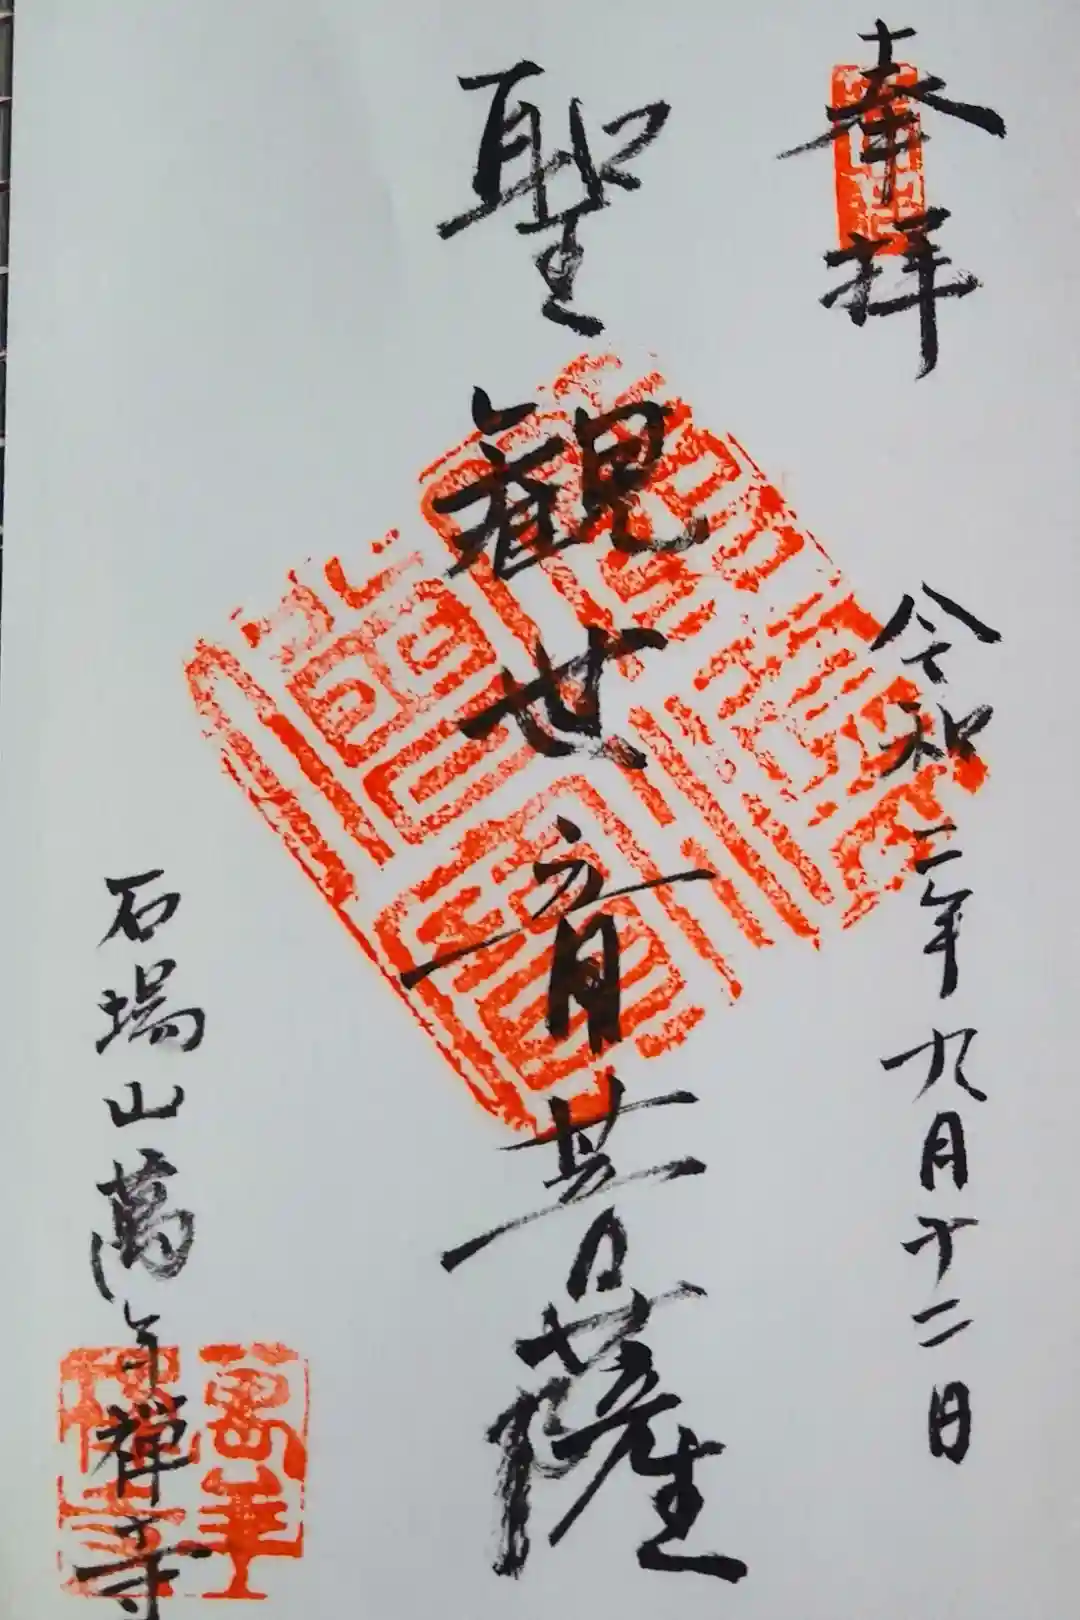 奉拝
令和二年九月十二日
聖観世音菩薩
石場山萬年禅寺
萬年
禅寺